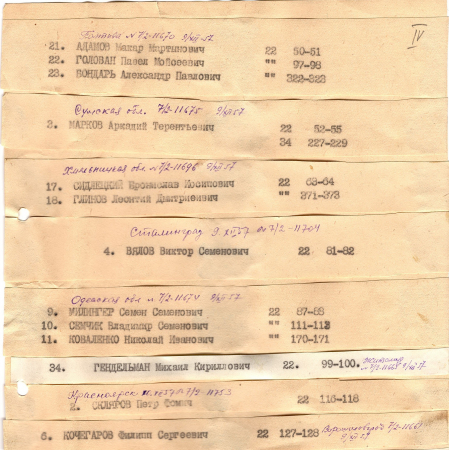 № 7/2-11670 9/XII-57
IV
21. АДАМОВ Макар Мартинович 22 50-51
22. ГОЛОВАН Павел Мойсеевич "" 97-98
23. БОНДАРЬ Александр Павлович "" 322-323
Сумская обл. 7/2-11675 9/XII 57
3. МАРКОВ Аркадий Терентьевич 22 52-55
34 227-229
Хмельницкая обл № 7/2-11696 9/XII 57
17. СИДЛЕЦКИЙ Бронислав Иосипович 22 63-64
18. ГЛИНОВ Леонтий Дмитриевич "" 371-373
Сталинград 9 XII 57 № 7/2-11704
4. ВЯЛОВ Виктор Семенович 22 81-82
Одесская обл № 7/2-11674 9/XII-57
9. МИЛИНГЕР Семен Семенович 22 87-88
10. СЕМЧИК Владимир Семенович "" 111-113
11. КОВАЛЕНКО Николай Иванович "" 170-171
34. ГЕНДЕЛЬМАН Михаил Кириллович 22. 99-100. Житомир
Красноярск 7/2-11753
2. СКЛЯРОВ Петр Фомич 22 116-118
6. КОЧЕГАРОВ Филипп Сергеевич 22 127-128